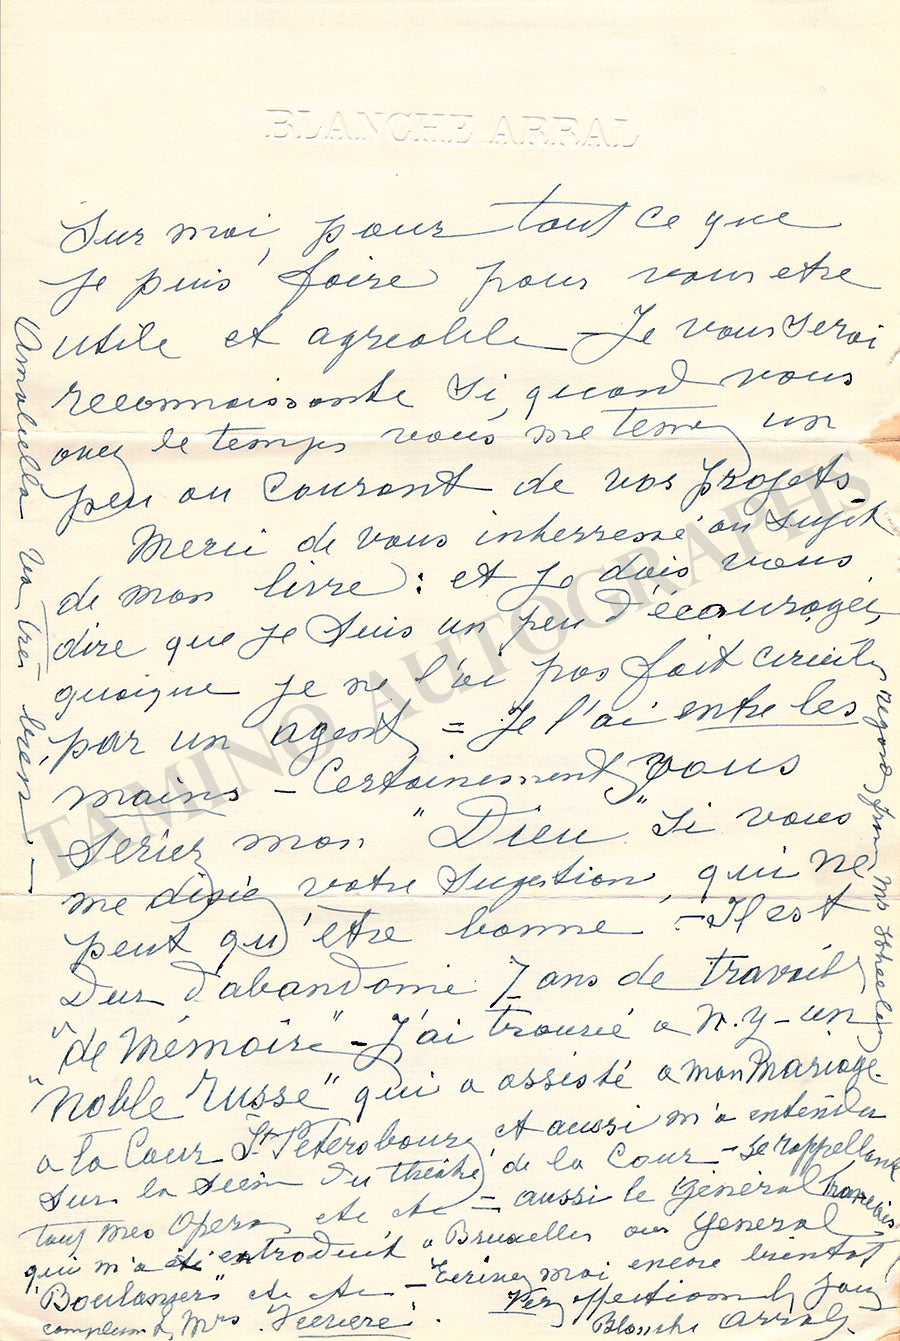 BLANCHE ARRAL
Sur moi, pour tout ce que
je puis faire pour vous etre
utile et agreable - Je vous serai
reconnaissante si, quand vous
avez le temps vous me tenez un
peu au courant de vos projets -
Merci de vous interressé au sujet
de mon livre : et je dois vous
dire que je suis un peu d'écouragée,
quoique je ne l'ai pas fait
par un agent = Je l'ai entre les
mains - Certainement vous
seriez mon "Dieu" si vous
me disiez votre sugestion, qui ne
peut qu'être bonne - Il est
Dur d'abandonné 7 ans de travail
"de Mémoire" - J'ai trouvé a N.Y - un
"Noble Russe" qui a assisté a mon Mariage
a la Cour St Petersbourg et aussi m'a entendu
sur la scène du théâtre de la Cour - se rappellant
tout mes Operas etc etc = aussi le Général Francais
qui m'a été introduit a Bruxelles au General
"Boulanger" etc etc - Ecrivez moi encore bientot
Very affectionately your
Blanche Arral
compliment Mrs
Amaliella va très bien -
regard from Mrs Wheeler
TAMINO AUTOGRAPHS